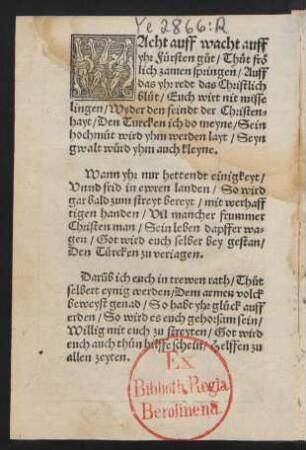 Ye 2866:R
WAcht auff wacht auff
yhr Fürsten gůt/ Thůt frö
lich zamen springen/ Auff
das yhr redt das Christlich
blůt/ Euch wirt nit misse
lingen/ Wyder den feindt der Christen-
hayt/ Den Turcken ich do meyne/ Sein
hochmůt wird yhm werden layt/ Seyn
gwalt würd yhm auch kleyne.
Wann yhr nur hettendt einigkeyt/
Vnnd frid in ewren landen/ So wird
gar bald zum streyt bereyt/ mit werhaff
tigen handen/ Vil mancher frummer
Christen man/ Sein leben dapffer wa-
gen/ Got wird euch selber bey gestan/
Den Türcken zu veriagen.
Darüb ich euch in trewen rath/ Thůt
selbert eynig werden/ Dem armen volck
beweyst genad/ So habt yhr glück auff
erden/ So wird es euch gehorsam sein/
Willig mit euch zu streyten/ Got wird
euch auch thün hilffe schein/ Helffen zu
allen zeyten.
Ex
Biblioth. Regia
Berolinenſi.